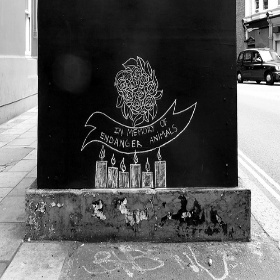 IN MEMORY OF
ENDANGER ANIMALS